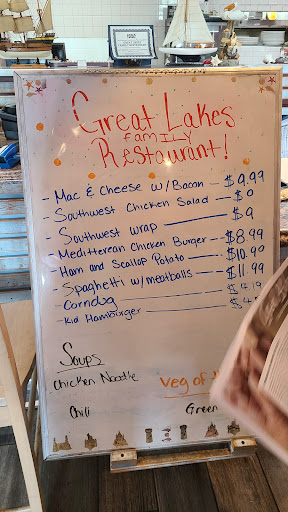 Great Lakes
FAMILY
Restaurant!
- Mac & Cheese w/Bacon - $9.99
- Southwest Chicken Salad - $9
- Southwest wrap - $9
- Meditterean Chicken Burger - $8.99
- Ham and Scallop Potato - $10.90
- Spaghetti w/meatballs - $11.99
- Corndog
- Kid Hamburger
Soups
Chicken Noodle
Veg of
Chili
Green